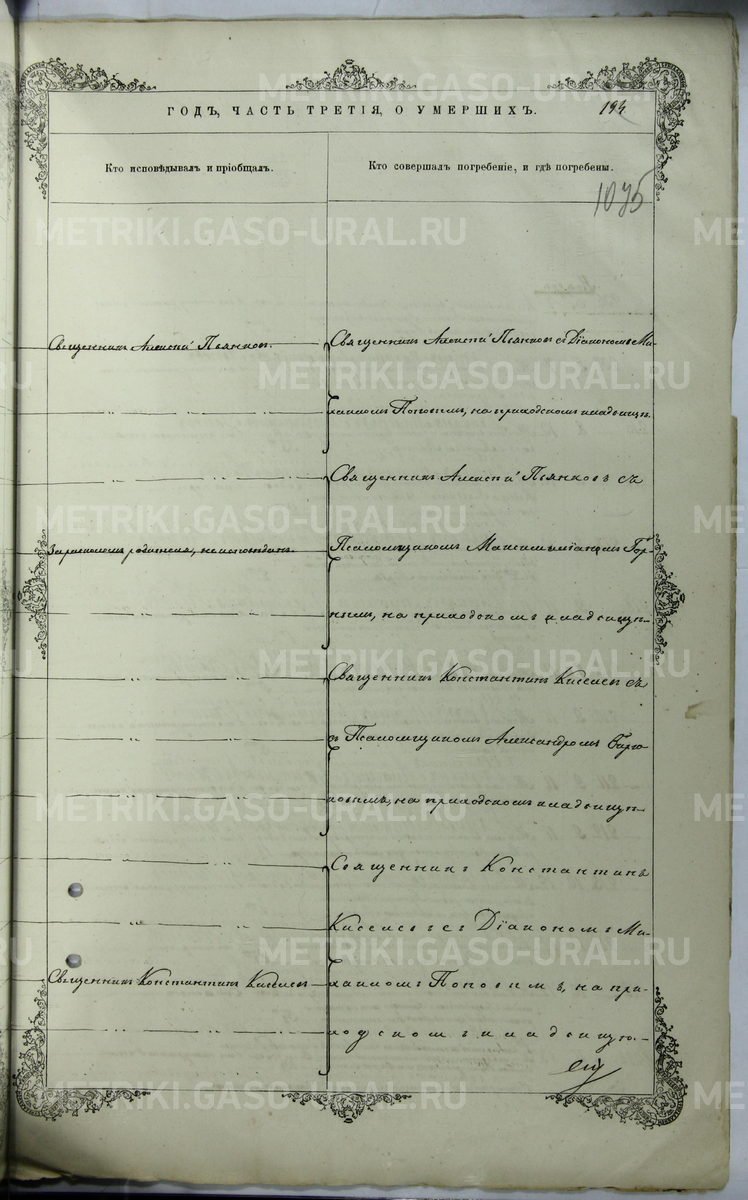 ГОДЪ, ЧАСТЬ ТРЕТІЯ, О УМЕРШИХЪ. 194
Кто исповѣдывалъ и пріобщалъ.
Кто совершалъ погребеніе, и гдѣ погребены.
Священникъ Алексѣй Пьянковъ.
Священникъ Алексѣй Пьянковъ съ Діакономъ Ми-
хаиломъ Поповымъ, на приходскомъ кладбищѣ.
Священникъ Алексѣй Пьянковъ съ
родителя, не исповѣданъ.
Псаломщикомъ Максимиліаномъ Гор-
нымъ, на приходскомъ кладбищѣ.
Священникъ Константинъ Киселевъ съ
Псаломщикомъ Александромъ
на приходскомъ кладбищѣ
Священникъ Константинъ
Киселевъ съ Діакономъ Ми-
Священникъ Константинъ Киселевъ
хаиломъ Поповымъ, на при-
ходскомъ кладбищѣ.
METRIKI.GASO-URAL.RU